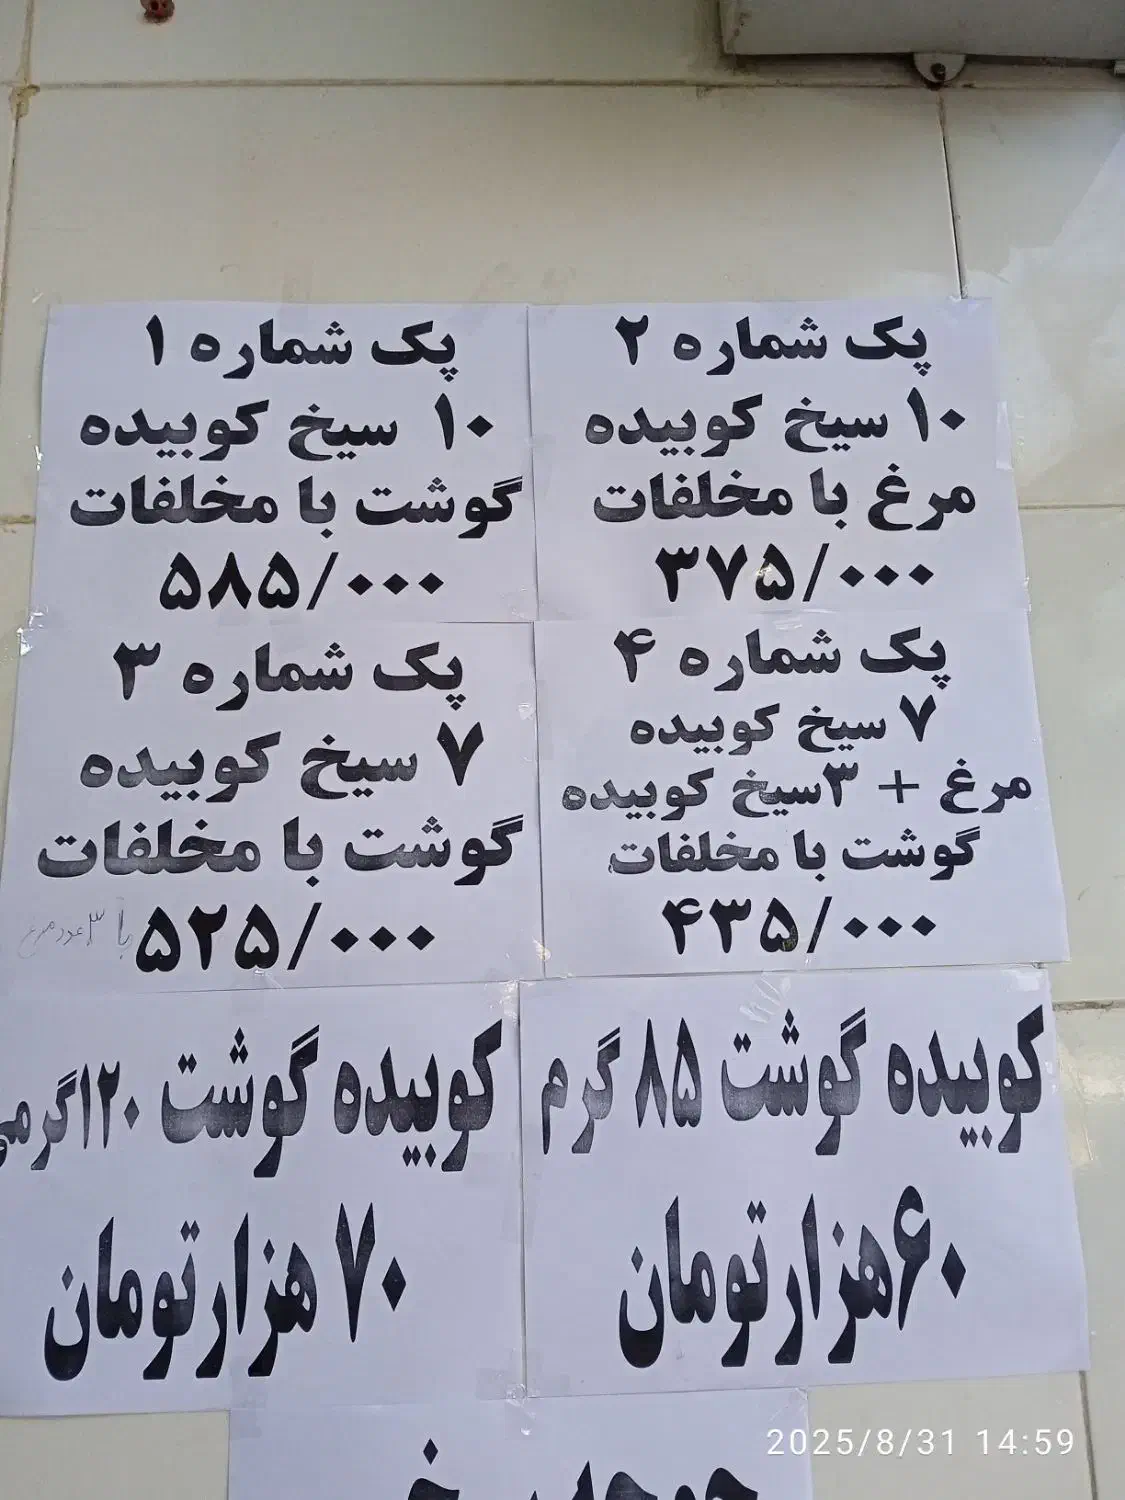 پک شماره ۱
۱۰ سیخ کوبیده
گوشت با مخلفات
۵۸۵/۰۰۰
پک شماره ۲
۱۰ سیخ کوبیده
مرغ با مخلفات
۳۷۵/۰۰۰
پک شماره ۳
۷ سیخ کوبیده
گوشت با مخلفات
۵۲۵/۰۰۰ با ۳ عدد مرغ
پک شماره ۴
۷ سیخ کوبیده
مرغ + ۳سیخ کوبیده
گوشت با مخلفات
۴۳۵/۰۰۰
کوبیده گوشت ۱۲۰گرمی
۷۰ هزارتومان
کوبیده گوشت ۸۵ گرم
۶۰هزارتومان
2025/8/31 14:59